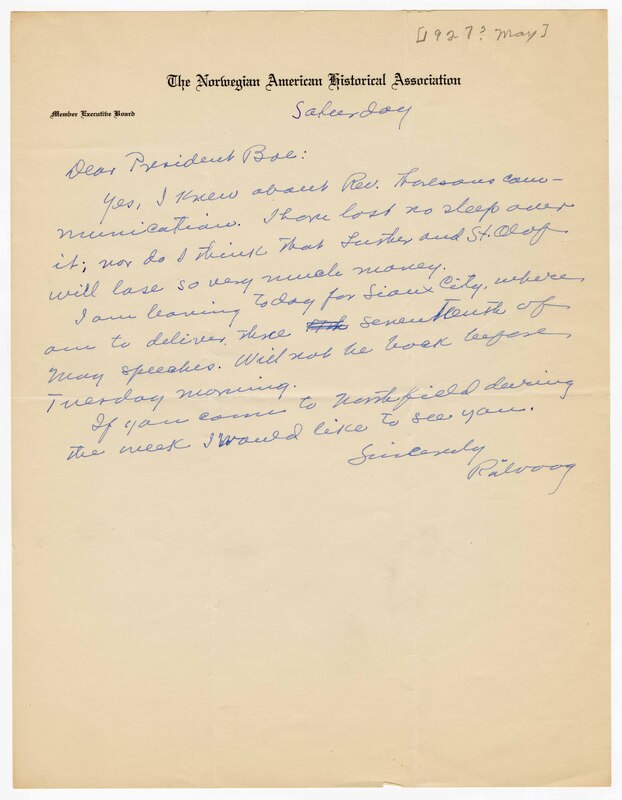 [1927? May]
The Norwegian American Historical Association
Member Executive Board
Saturday
Dear President Boe:
Yes, I knew about Rev. Thoresons com-
munication. I have lost no sleep over
it; nor do I think that Luther and St. Olaf
will lose so very much money.
I am leaving today for Sioux City, where
am to deliver three seventeenth of
May speeches. Will not be back before
Tuesday morning.
If you come to Northfield during
the week I would like to see you.
Sincerely
Rølvaag